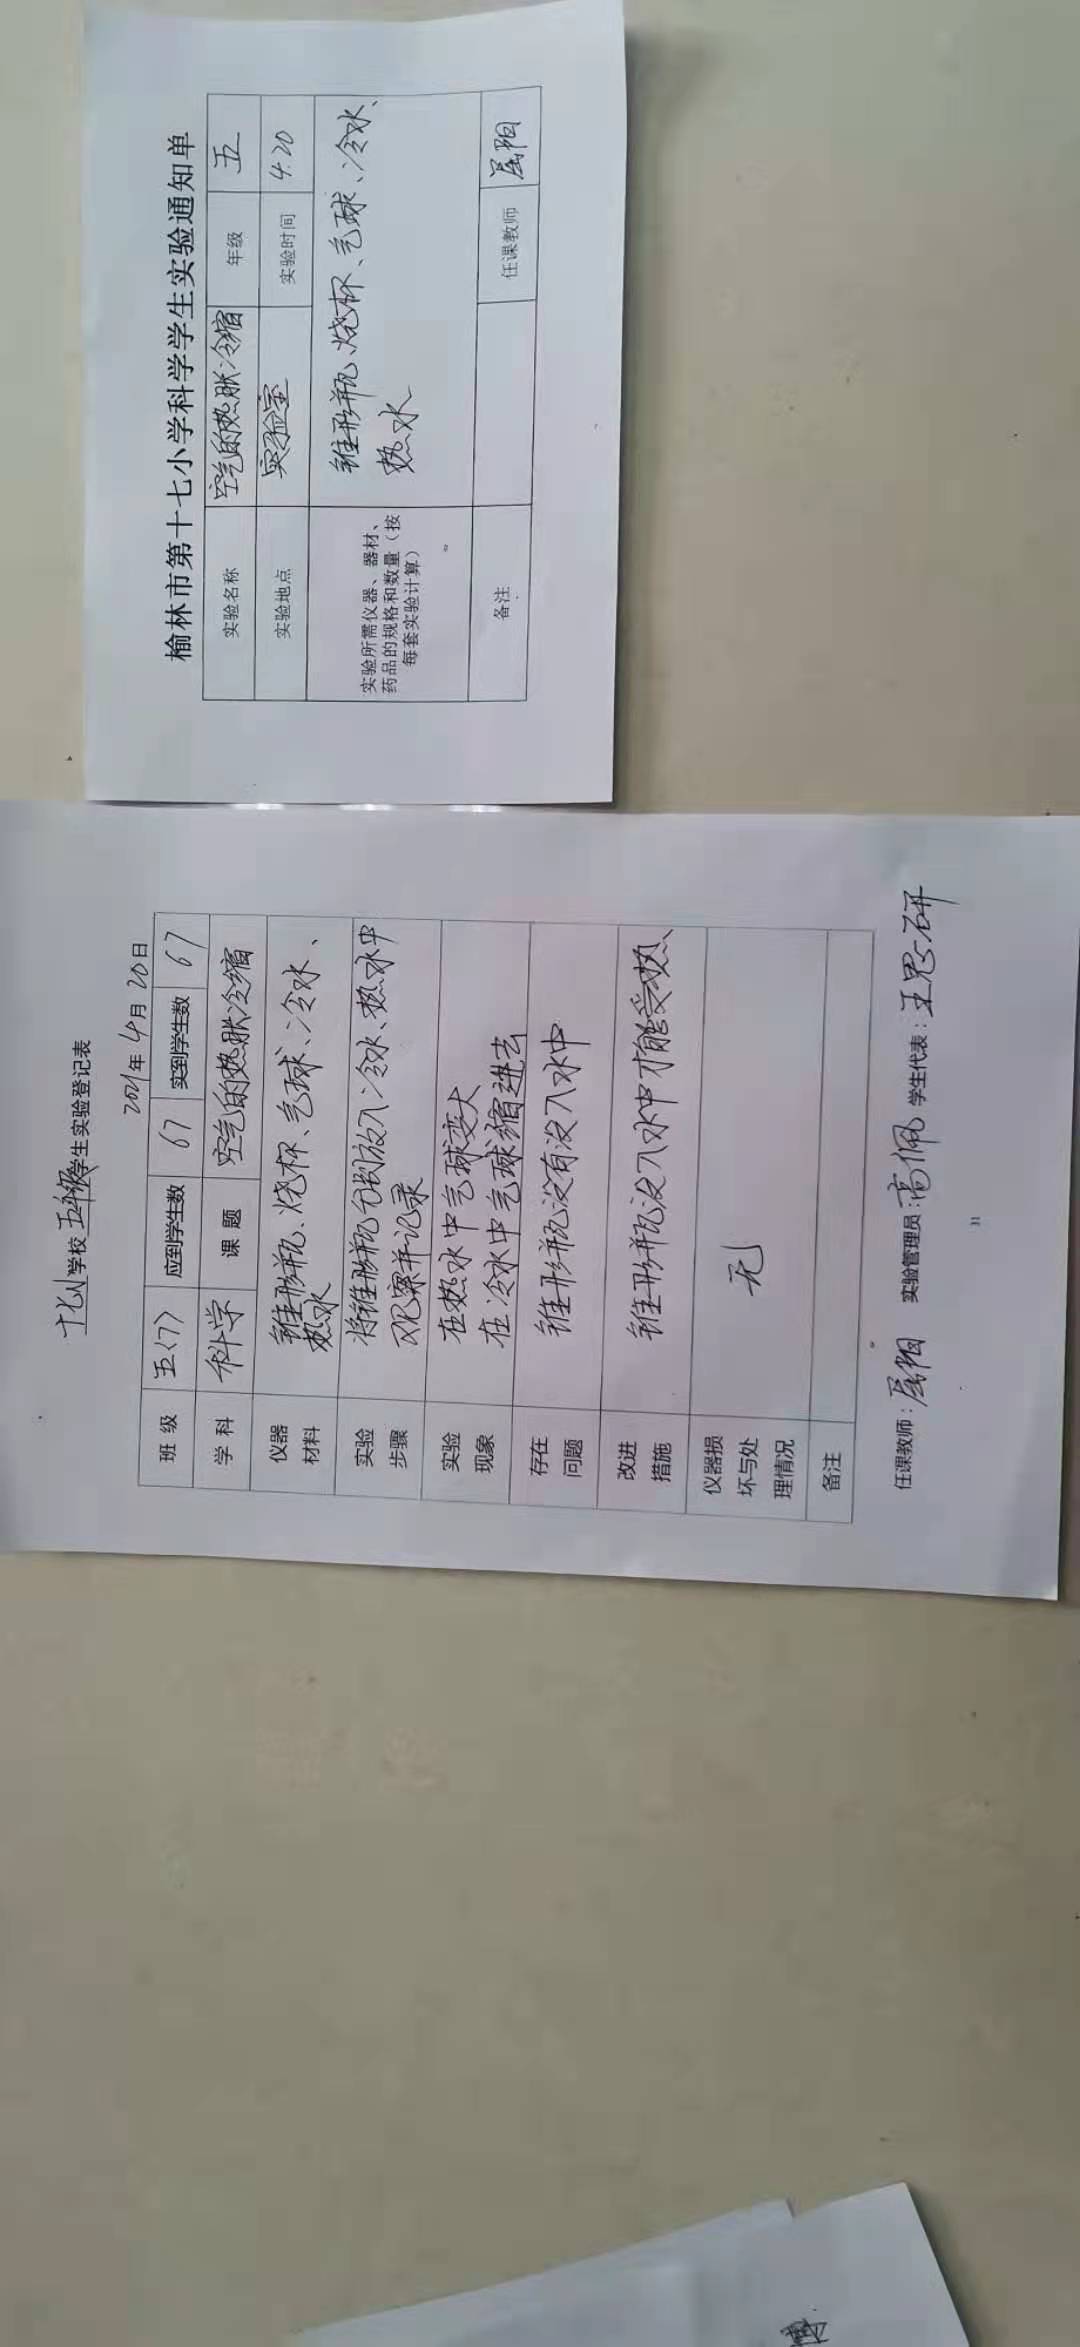 榆林市第十七小学科学学生实验通知单
实验名称 空气的热胀冷缩 年级 五
实验地点 实验室 实验时间 4.20
实验所需仪器、器材、
药品的规格和数量（按
每套实验计算）
锥形瓶、烧杯、气球、冷水、
热水
备注 任课教师 屈阳
十七小学校五年级学生实验登记表
2021年4月20日
班 级 五(7) 应到学生数 67 实到学生数 67
学 科 科学 课 题 空气的热胀冷缩
仪器
材料
锥形瓶、烧杯、气球、冷水、
热水
实验
步骤
将锥形瓶分别放入冷水、热水中
观察并记录
实验
现象
在热水中气球变大
在冷水中气球缩进去
存在
问题
锥形瓶没有没入水中
改进
措施
锥形瓶没入水中才能受热、
仪器损
坏与处
理情况
无
备注
任课教师：屈阳 实验管理员：高佩 学生代表：王思研
31